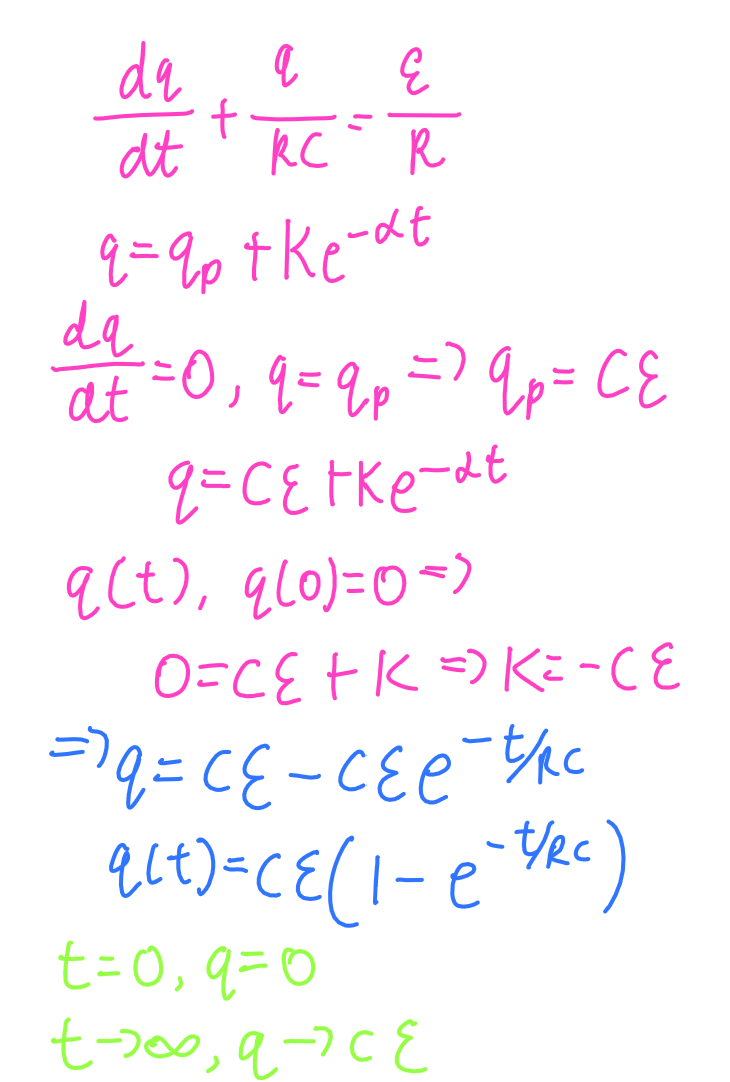 dq/dt + q/RC = ε/R
q = qₚ + Ke^(-αt)
dq/dt = 0, q = qₚ => qₚ = Cε
q = Cε + Ke^(-αt)
q(t), q(0) = 0 =>
0 = Cε + K => K = -Cε
=> q = Cε - Cεe^(-t/RC)
q(t) = Cε(1 - e^(-t/RC))
t = 0, q = 0
t → ∞, q → Cε